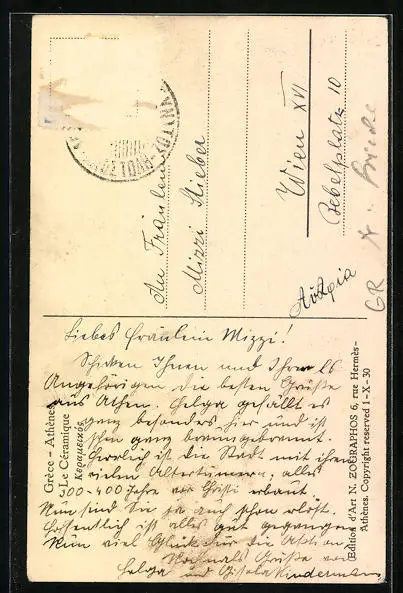 An Fräulein
Mizzi Stieber
Wien XVI
Zebelplatz 10
Αυστρία
GR
Grèce - Athènes
Le Céramique
Κεραμεικός
Edition d'Art N. ZOGRAPHOS 6, rue Hermès -
Athènes. Copyright reserved 1-X-30
Liebes Fräulein Mizzi!
Schicken Ihnen und Ihren lb
Angehörigen die besten Grüße
aus Athen. Helga gefällt es
ganz besonders hier und ist
schon ganz braungebrannt.
Herrlich ist die Stadt mit ihren
vielen Altertümern, alles
300-400 Jahre vor Christi erbaut.
Nun sind Sie ja auch schon erlöst.
Hoffentlich ist alles gut gegangen
Nun viel Glück für die Aktion.
Nochmals Grüße von
Helga und Gisela Kindermann